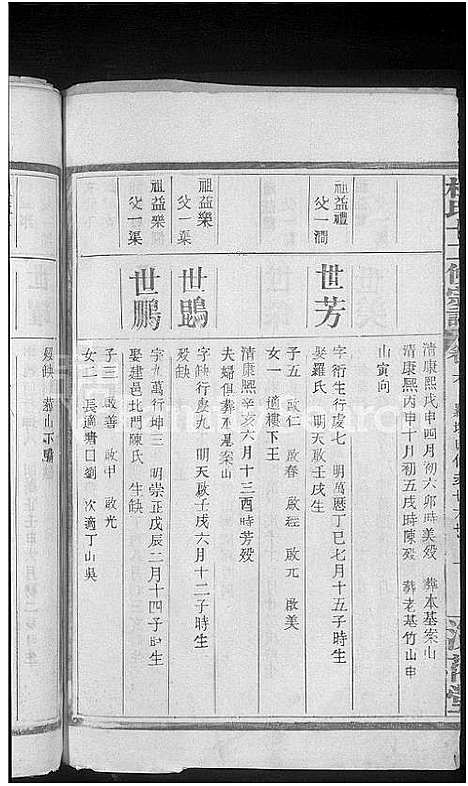 清康熙戊申四月初六卯時美殁　葬本基案山
清康熙丙申十月初五戌時陳殁　葬老基竹山申
山寅向
祖益禮
父一澗
世芳
字衍生行虔七　明萬曆丁巳七月十五子時生
娶羅氏　明天啟壬戌生
子五　啟仁　啟春　啟經　啟元　啟美
女一　適樓下王
清康熙辛亥六月十三酉時芳殁
夫婦俱葬　案山
祖益樂
父一渠
世鵾
字缺行虔九　明天啟壬戌六月十二子時生
殁缺
祖益樂
父一渠
世鵬
字九萬行坤三　明崇正戊辰二月十四子時生
娶建邑北門陳氏　生缺
子三　啟善　啟中　啟光
女二　長適塘口劉　次適丁山吳
殁缺　葬山下